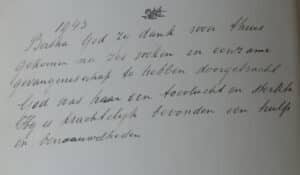 1943
Bertha God zij dank weer thuis
gekomen na zes weken in eenzame
gevangenschap te hebben doorgebracht
God was haar een toevlucht en sterkte
Hij is krachtelijk bevonden een hulp
in benauwdheden